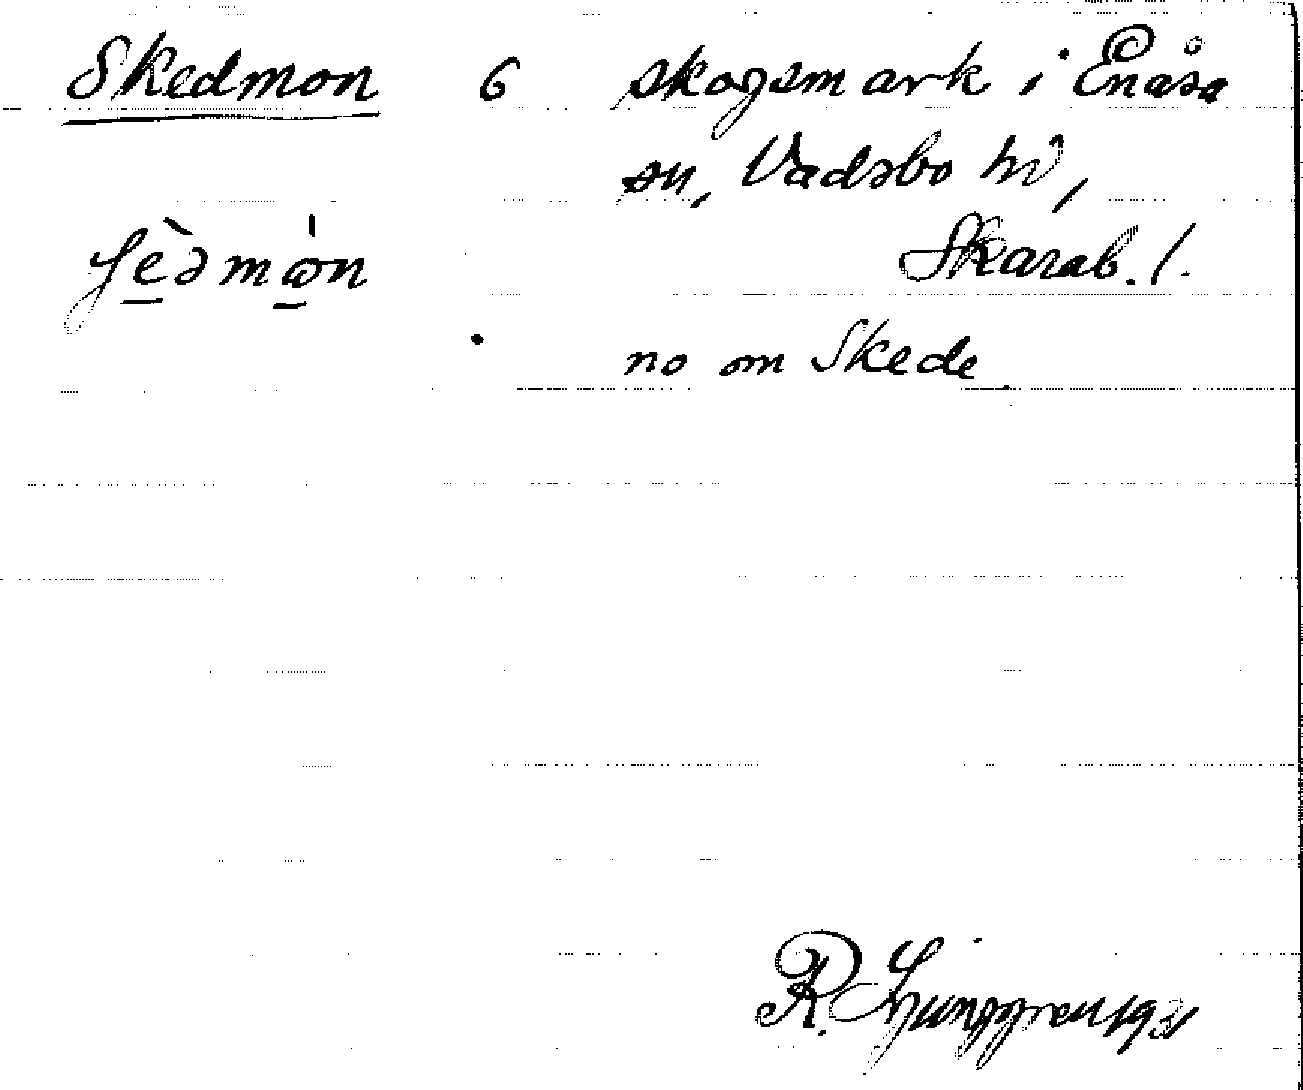 Skedmon 6 skogsmark i Enåsa
sn, Vadsbo hd,
Skarab. l.
no om Skede
R. Ljunggren 1931